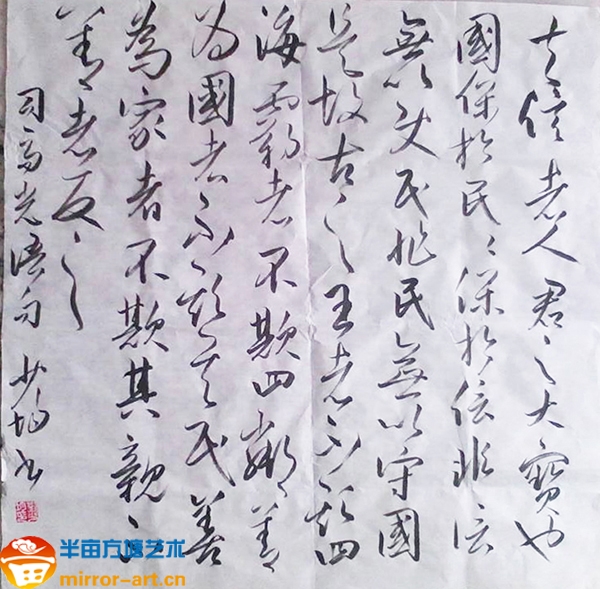 夫信者人君之大寶也
國保於民々保於信非信
無以使民非民無以守國
是故古之王者不欺四
海霸者不欺四鄰善
为國者不欺其民善
為家者不欺其親不
善者反之
司马光語句 少
半亩方塘艺术
mirror-art.cn